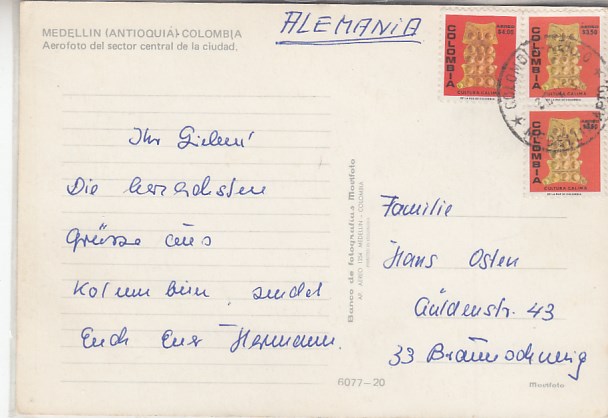 MEDELLIN (ANTIOQUIA)-COLOMBIA
Aerofoto del sector central de la ciudad.
ALEMANIA
COLOMBIA
CULTURA CALIMA
COLOMBIA
CULTURA CALIMA
COLOMBIA
CULTURA CALIMA
Ihr Lieben!
Die herzlichsten
Grüsse aus
Kolumbien, sendet
Euch Euer Hermann.
Banco de fotografias Montfoto
MEDELLIN - COLOMBIA
Familie
Hans Osten
Güldenstr. 43
33 Braunschweig
6077-20
Montfoto